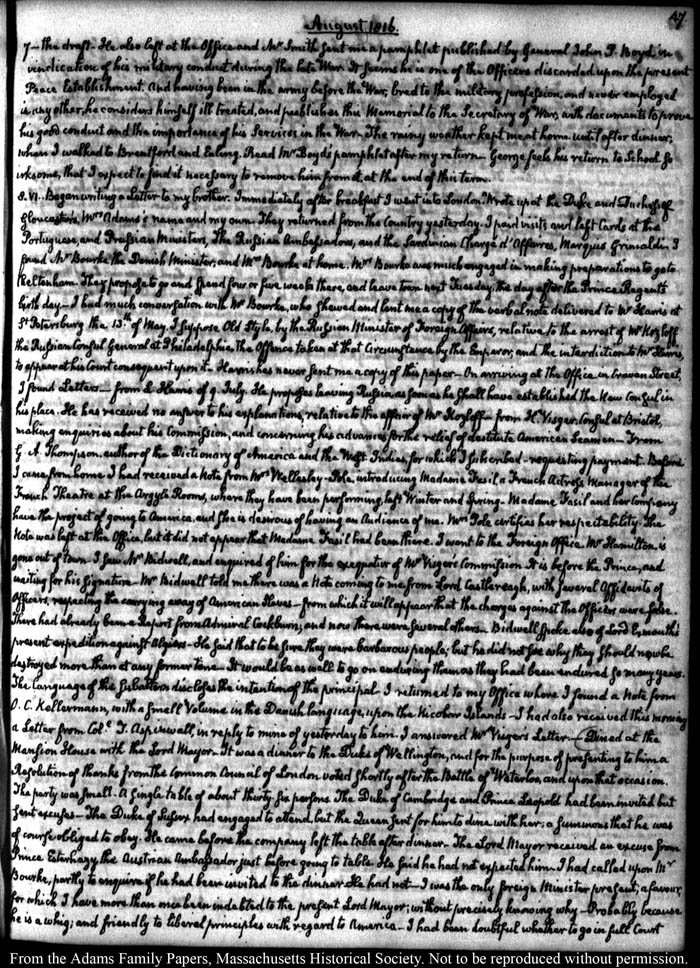 47
August 1816.
7— the draft. He also left at the Office and Mr Smith sent me a pamphlet published by General John P. Boyd, in
vindication of his military conduct during the late War. It seems he is one of the Officers discarded upon the present
Peace Establishment. And having been in the army before the War, bred to the military profession, and never employed
in any other, he considers himself ill treated, and publishes this Memorial to the Secretary of War, with documents to prove
his good conduct and the importance of his Services in the War. The rainy weather kept me at home until after dinner;
when I walked to Brentford and Ealing. Read Mr Boyd's pamphlet after my return— George feels his return to School so
irksome, that I expect to find it necessary to remove him from it at the end of this term.
8. VI. Began writing a Letter to my brother. Immediately after breakfast I went into London. Wrote up at the Duke and Duchess of
Gloucester's, Mrs Adams's name and my own. They returned from the Country yesterday. I paid visits and left Cards at the
Portuguese, and Prussian Ministers, The Russian Ambassadors, and the Sardinian Chargé d'Affaires, Marquis Grimaldi. I
found Mr Bourke the Danish Minister, and Mrs Bourke at home. Mrs Bourke was much engaged in making preparations to go to
Cheltenham. They propose to go and spend four or five weeks there, and leave town next Tuesday, the day after the Prince Regent's
birth day— I had much conversation with Mr Bourke, who shewed and lent me a copy of the verbal note delivered to Mr Harris at
St Petersburg the 13th of May, I suppose Old Style, by the Russian Minister of Foreign Affairs, relative to the arrest of Mr Kozloff,
the Russian Consul General at Philadelphia, the Offence taken at that Circumstance by the Emperor, and the interdiction to Mr Harris,
to appear at his Court consequent upon it— Harris has never sent me a copy of this paper— On arriving at the Office in Craven Street,
I found Letters— from L. Harris of 9. July. He proposes leaving Russia as soon as he shall have established the New Consul in
his place. He has received no answer to his explanations, relative to the affair of Mr Kozloff— from H. Visger, Consul at Bristol,
making enquiries about his Commission, and concerning his advances for the relief of destitute American Seamen— From
G. A. Thompson, author of the Dictionary of America and the West Indies, for which I subscribed— requesting payment. Before
I came from home I had received a Note from Mrs Wellesley-Pole, introducing Madame Fasil, a French Actress Manager of the
French Theatre at the Argyle Rooms, where they have been performing, last Winter and Spring. Madame Fasil and her Company
have the project of going to America, and she is desirous of having an Audience of me. Mrs Pole certifies her respectability. The
Note was left at the Office, but it did not appear that Madame Fasil had been there. I went to the Foreign Office. Mr Hamilton, is
gone out of town. I saw Mr Bidwell, and enquired of him for the exequatur of Mr Visger's Commission. It is before the Prince, and
waiting for his Signature— Mr Bidwell told me there was a Note coming to me from Lord Castlereagh, with several Affidavits of
Officers, respecting the carrying away of American Slaves— from which it will appear that the charges against the Officers were false.
There had already been a Report from Admiral Cockburn; and now there were several others— Bidwell spoke also of Lord Exmouth's
present expedition against Algiers— He said that to be sure they were barbarous people; but he did not see why they should now be
destroyed more than at any former time— It would be as well to go on enduring them as they had been endured so many years.
The Language of the Subaltern discloses the intention of the principal— I returned to my Office where I found a Note from
O. C. Kellermann, with a small Volume in the Danish language, upon the Nicobar Islands— I had also received this morning
a Letter from Col. T. Aspinwall, in reply to mine of yesterday to him. I answered Mr Visger's Letter— Dined at the
Mansion House with the Lord Mayor— It was a dinner to the Duke of Wellington, and for the purpose of presenting to him a
Resolution of thanks from the Common Council of London voted shortly after the Battle of Waterloo, and upon that occasion.
The party was small. A single table of about thirty six persons. The Duke of Cambridge and Prince Leopold had been invited but
sent excuses— The Duke of Sussex had engaged to attend, but the Queen sent for him to dine with her; a summons that he was
of course obliged to obey. He came before the company left the table after dinner. The Lord Mayor received an excuse from
Prince Esterhazy the Austrian Ambassador just before going to table. He said he had not expected him. I had called upon Mr
Bourke, partly to enquire if he had been invited to the dinner. He had not— I was the only foreign Minister present, a favour,
for which I have more than once been indebted to the present Lord Mayor; without precisely knowing why— Probably because
he is a whig; and friendly to liberal principles with regard to America.— I had been doubtful whether to go in full Court
From the Adams Family Papers, Massachusetts Historical Society. Not to be reproduced without permission.